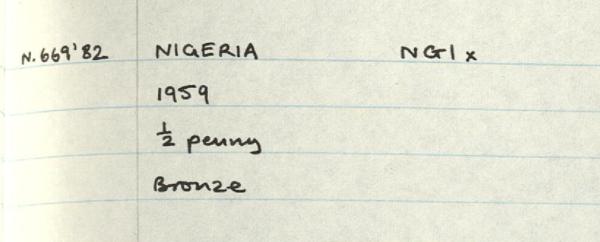 N.669'82 NIGERIA NGI x
1959
½ penny
Bronze